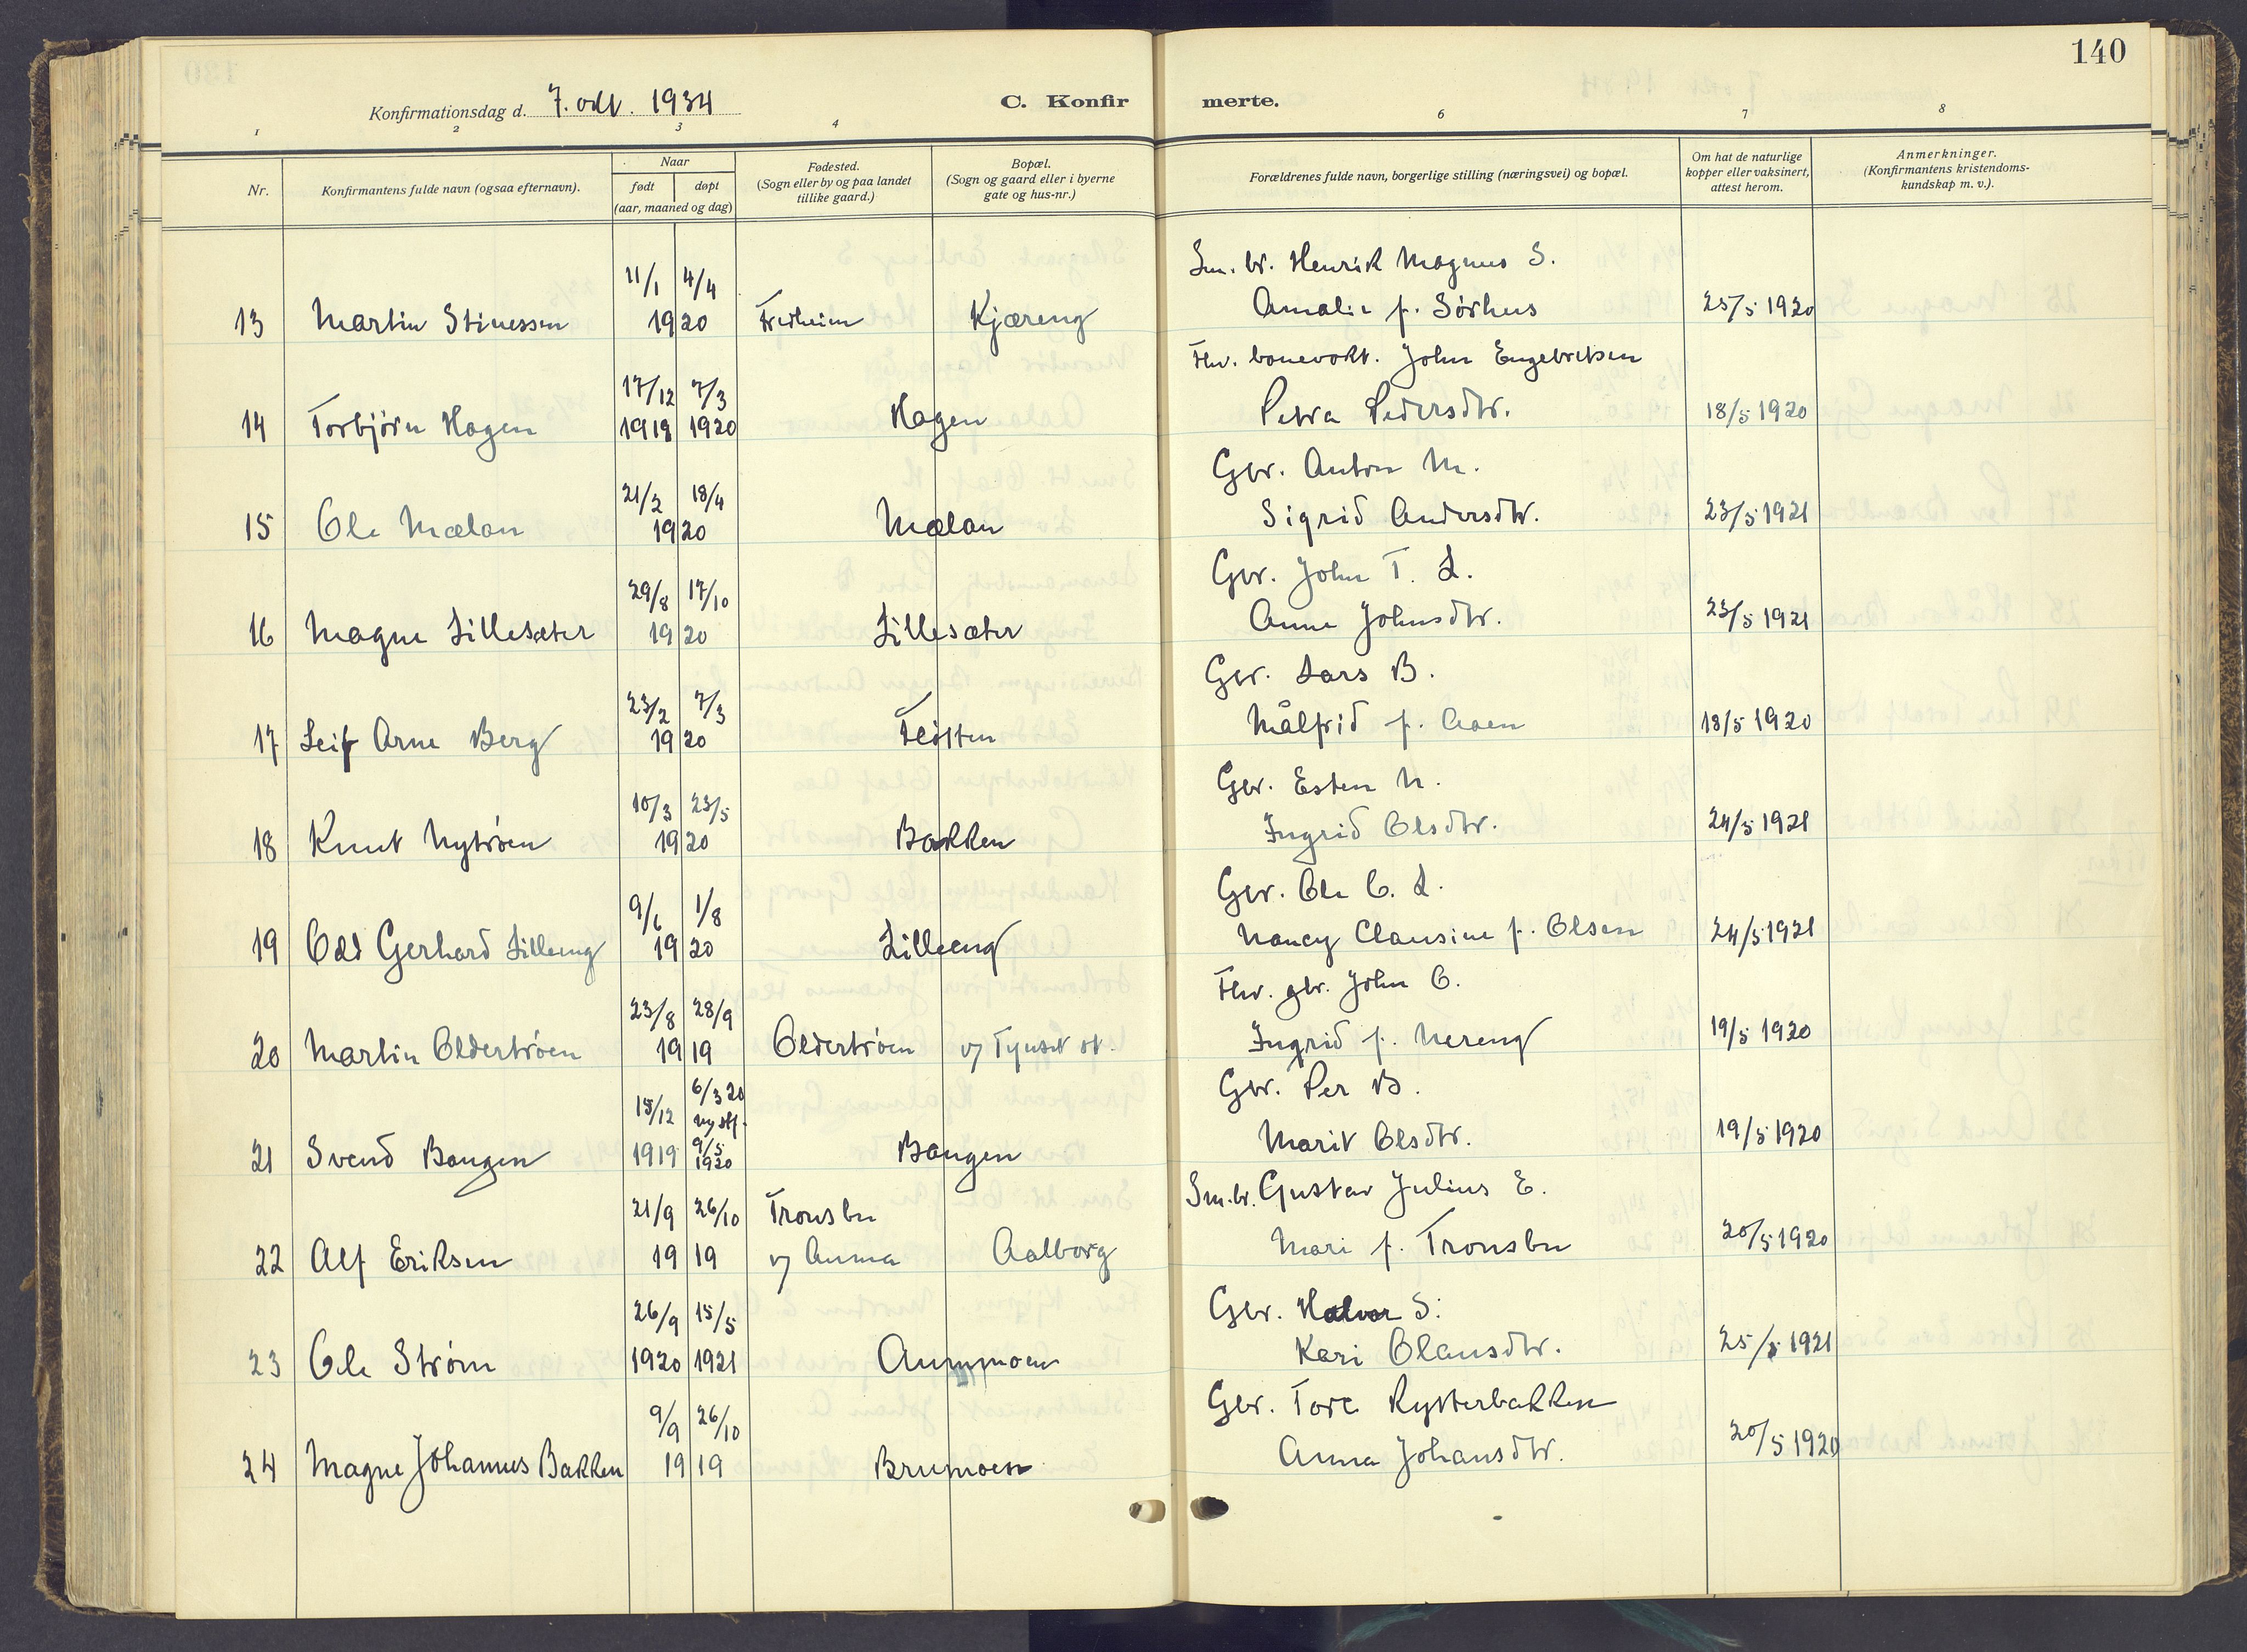 140
Konfirmationsdag d. 7. okt. 1934
C. Konfirmerte.
1 2 3 4 6 7 8
Nr.
Konfirmantens fulde navn (ogsaa efternavn).
Naar
født døpt
(aar, maaned og dag)
Fødested.
(Sogn eller by og paa landet
tillike gaard.)
Bopæl.
(Sogn og gaard eller i byerne
gate og hus-nr.)
Forældrenes fulde navn, borgerlige stilling (næringsvei) og bopæl.
Om hat de naturlige
kopper eller vaksinert,
attest herom.
Anmerkninger.
(Konfirmantens kristendoms-
kundskap m. v.).
11/1 4/4 Sm. br. Henrik Magnus S.
13 Martin Stinessen 1920 Kjæreng Amalie f. Sørhus 25/5 1920
17/12 7/3 Fhv. banevokt. John Engebretsen
14 Torbjørn Hagen 1918 1920 Hagen Petra Pedersdtr. 18/5 1920
21/2 18/4 Gbr. Anton M.
15 Ole Mælan 1920 Mælan Sigrid Andersdtr. 23/5 1921
29/8 17/10 Gbr. John T. L.
16 Magne Lillesæter 1920 Lillesæter Anne Johnsdtr. 23/5 1921
23/2 7/3 Gbr. Lars B.
17 Leif Arne Berg 1920 Målfrid f. Aaen 18/5 1920
10/3 23/5 Gbr. Esten N.
18 Knut Nytrøen 1920 Bakken Ingrid Olsdtr. 24/5 1921
9/6 1/8 Gbr. Ole O. L.
19 Odd Gerhard Lilleeng 1920 Lilleeng Nancy Clausine f. Olsen 24/5 1921
23/8 28/9 Fhv. gbr. John O.
20 Martin Oldertrøen 1919 Oldertrøen v/ Tynset st. Ingrid f. Nereng 19/5 1920
15/12 6/3 20 Gbr. Per B.
1919 9/5 1920
21 Svend Bangen Bangen Marit Olsdtr. 19/5 1920
21/9 26/10 Tronsbu Sm. br. Gustav Julius E.
22 Alf Eriksen 1919 v/ Auma Aalborg Mari f. Tronsbu 20/5 1920
26/9 15/5 Gbr. Halvor S.
23 Ole Strøm 1920 1921 Aummoen Kari Olausdtr. 25/5 1921
9/9 26/10 Gbr. Tore Rytterbakken
24 Magne Johannes Bakken 1919 Brumoen Anna Johansdtr. 20/5 1920